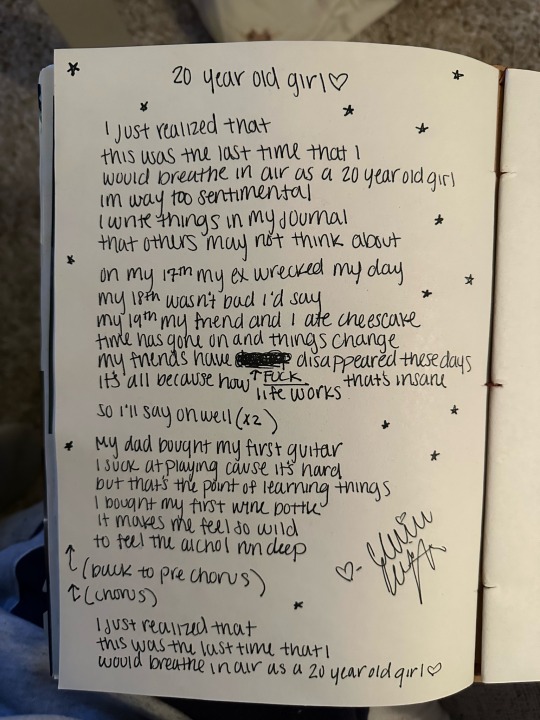 20 year old girl♡
I just realized that
this was the last time that I
would breathe in air as a 20 year old girl
im way too sentimental
I write things in my journal
that others may not think about
on my 17th my ex wrecked my day
my 18th wasn't bad I'd say
my 19th my friend and I ate cheescake
time has gone on and things change
my friends have disappeared these days
it's all because how ↑ FUCK that's insane
life works
so I'll say oh well (x2)
My dad bought my first guitar
I suck at playing cause it's hard
but that's the point of learning things
I bought my first wine bottle
it makes me feel so wild
to feel the alchol run deep
↑ (back to pre chorus)
↑ (chorus)
I just realized that
this was the last time that I
would breathe in air as a 20 year old girl♡